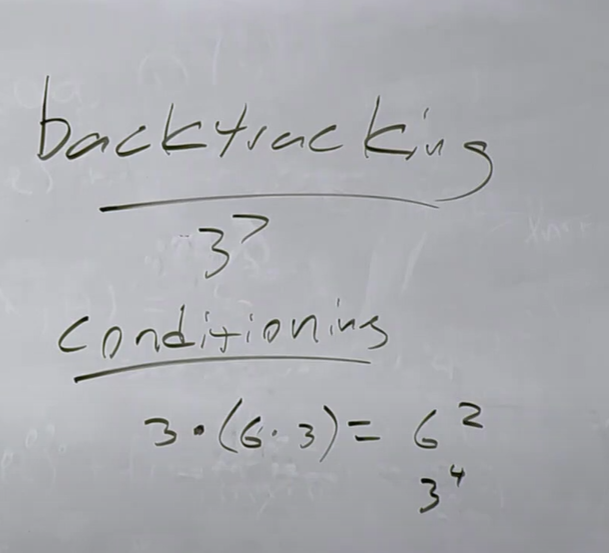 backtracking
3⁷
conditioning
3·(6·3) = 6²
3⁴